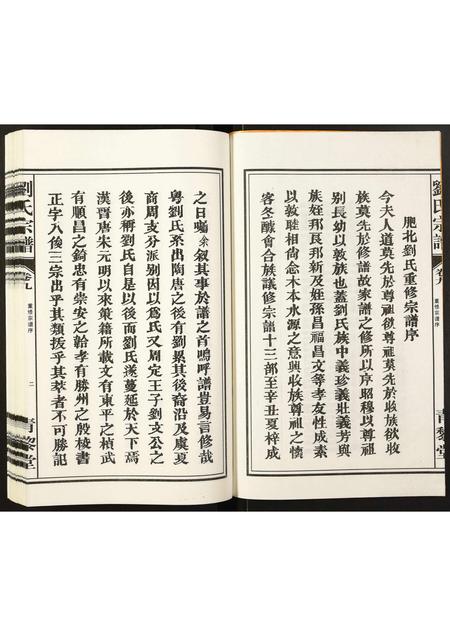 劉氏宗譜
卷九
重修宗譜序
青黎堂
胞北劉氏重修宗譜序
今夫人道莫先於尊祖欲尊祖莫先於收族欲收
族莫先於修譜故家譜之修所以序昭穆以尊祖
别長幼以敦族也蓋劉氏族中義珍義壯義芳與
族姪邦良邦新及姪孫昌福昌文等孝友性成素
以敦睦相尚念木本水源之意興收族尊祖之情
客冬醵會合族議修宗譜十三部至辛丑夏梓成
之日囑余叙其事於譜之首嗚呼譜豈易言修哉
粤劉氏系出陶唐之後有劉累其後裔沿及虞夏
商周支分派别因以爲氏又周定王子劉文公之
後亦稱劉氏自是以後而劉氏遂蔓延於天下焉
漢晋唐朱元明以來策籍所載文有東平之楨武
有順昌之錡忠有崇安之韐孝有勝州之殷稜書
正字八俊三宗出乎其類拔乎其萃者不可勝記
劉氏宗譜
卷九
重修宗譜序
二
青黎堂